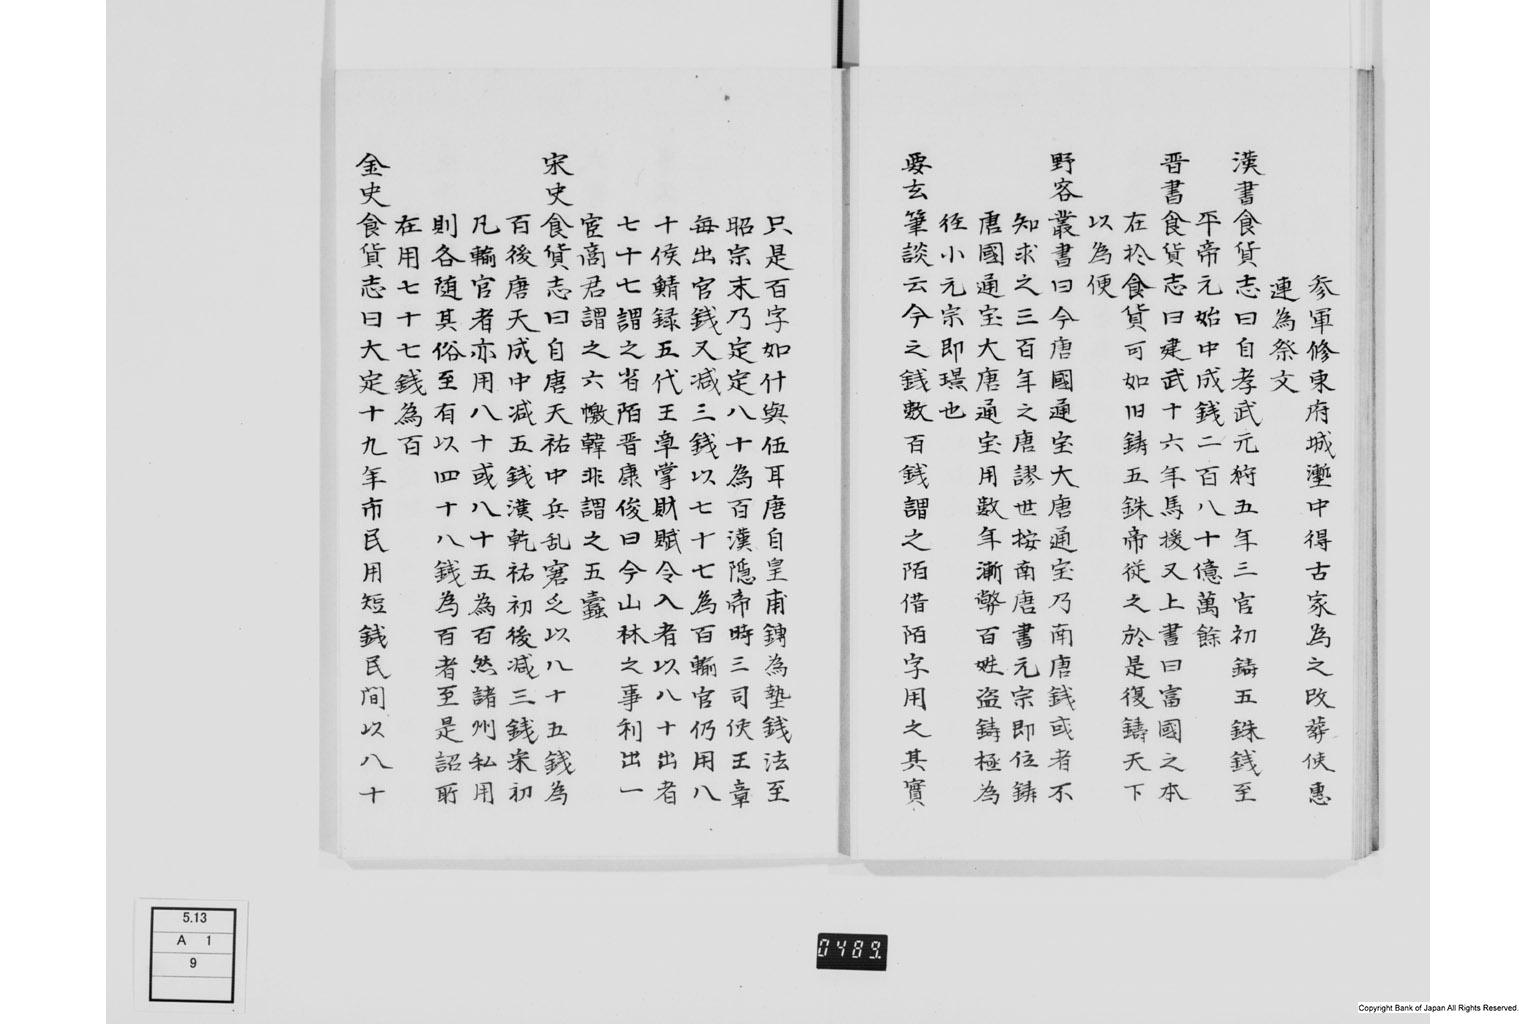 参軍修東府城壍中得古冢為之改葬使惠
連為祭文
漢書食貨志曰自孝武元狩五年三官初鑄五銖銭至
平帝元始中成銭二百八十億萬餘
晋書食貨志曰建武十六年馬援又上書曰富國之本
在於食貨可如旧鋳五銖帝従之於是復鋳天下
以為便
野客叢書曰今唐國通宝大唐通宝乃南唐銭或者不
知求之三百年之唐謬世按南唐書元宗即位鋳
唐國通宝大唐通宝用数年漸弊百姓盗鋳極為
径小元宗即璟也
要玄筆談云今之銭數百銭謂之陌借陌字用之其實
只是百字如什與伍耳唐自皇甫鎛為墊銭法至
昭宗末乃定定八十為百漢隠帝時三司使王章
毎出官銭又减三銭以七十七為百輸官仍用八
十侯鯖録五代王章掌財賦令入者以八十出者
七十七謂之省陌晋康俊曰今山林之事利出一
宦商君謂之六懒韓非謂之五蠹
宋史食貨志曰自唐天祐中兵乱窘乏以八十五銭為
百後唐天成中减五銭漢乾祐初後减三銭宋初
凡輸官者亦用八十或八十五為百然諸州私用
則各随其俗至有以四十八銭為百者至是詔所
在用七十七銭為百
金史食貨志曰大定十九年市民用短銭民間以八十
5.13
A 1
9
0489.
Copyright Bank of Japan All Rights Reserved.